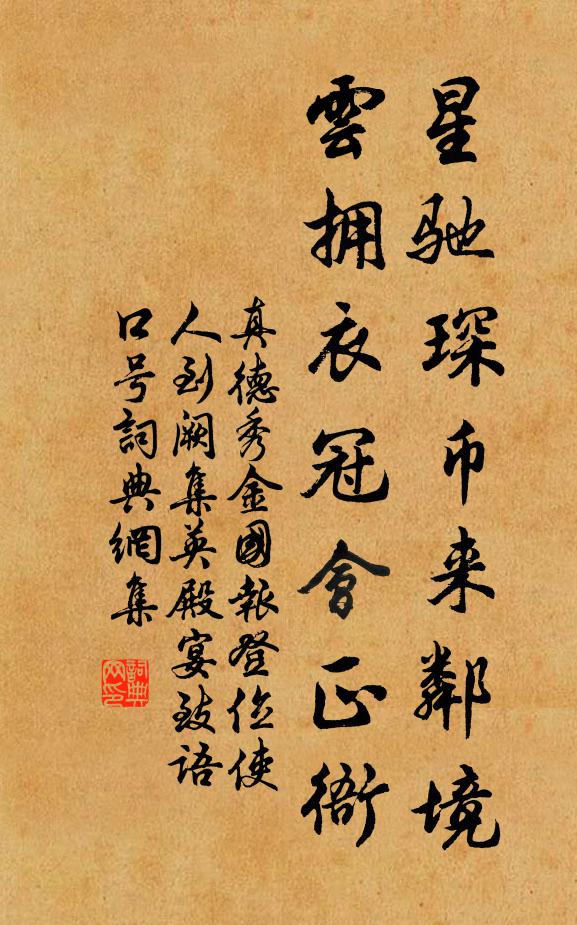 星驰琛币来鄰境
雲拥衣冠會正衙
真德秀金國報登位使
人到阙集英殿宴致语
口号詞典網集
詞典
网印